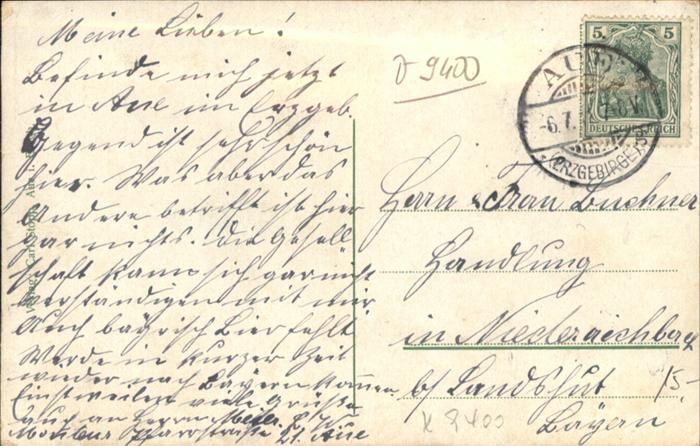 Meine Lieben!
Befinde mich jetzt
in Aue im Erzgeb.
Gegend ist sehr schön
hier. Was aber das
Andere betrifft ist hier
gar nichts. Die Gesell-
schaft kann sich gar nicht
verständigen mit mir
Auch bayrisch Bier fehlt
Werde in kurzer Zeit
wieder nach Bayern kommen
Einstweilen viele Grüße
auch an Herrn
Aue
D 9400
5 5
DEUTSCHES REICH
AUE
-6.7.
(ERZGEBIRGE)
Herrn & Frau Buchner
Handlung
in Niederaichbach
b/ Landshut
Bayern
15-
K 9400